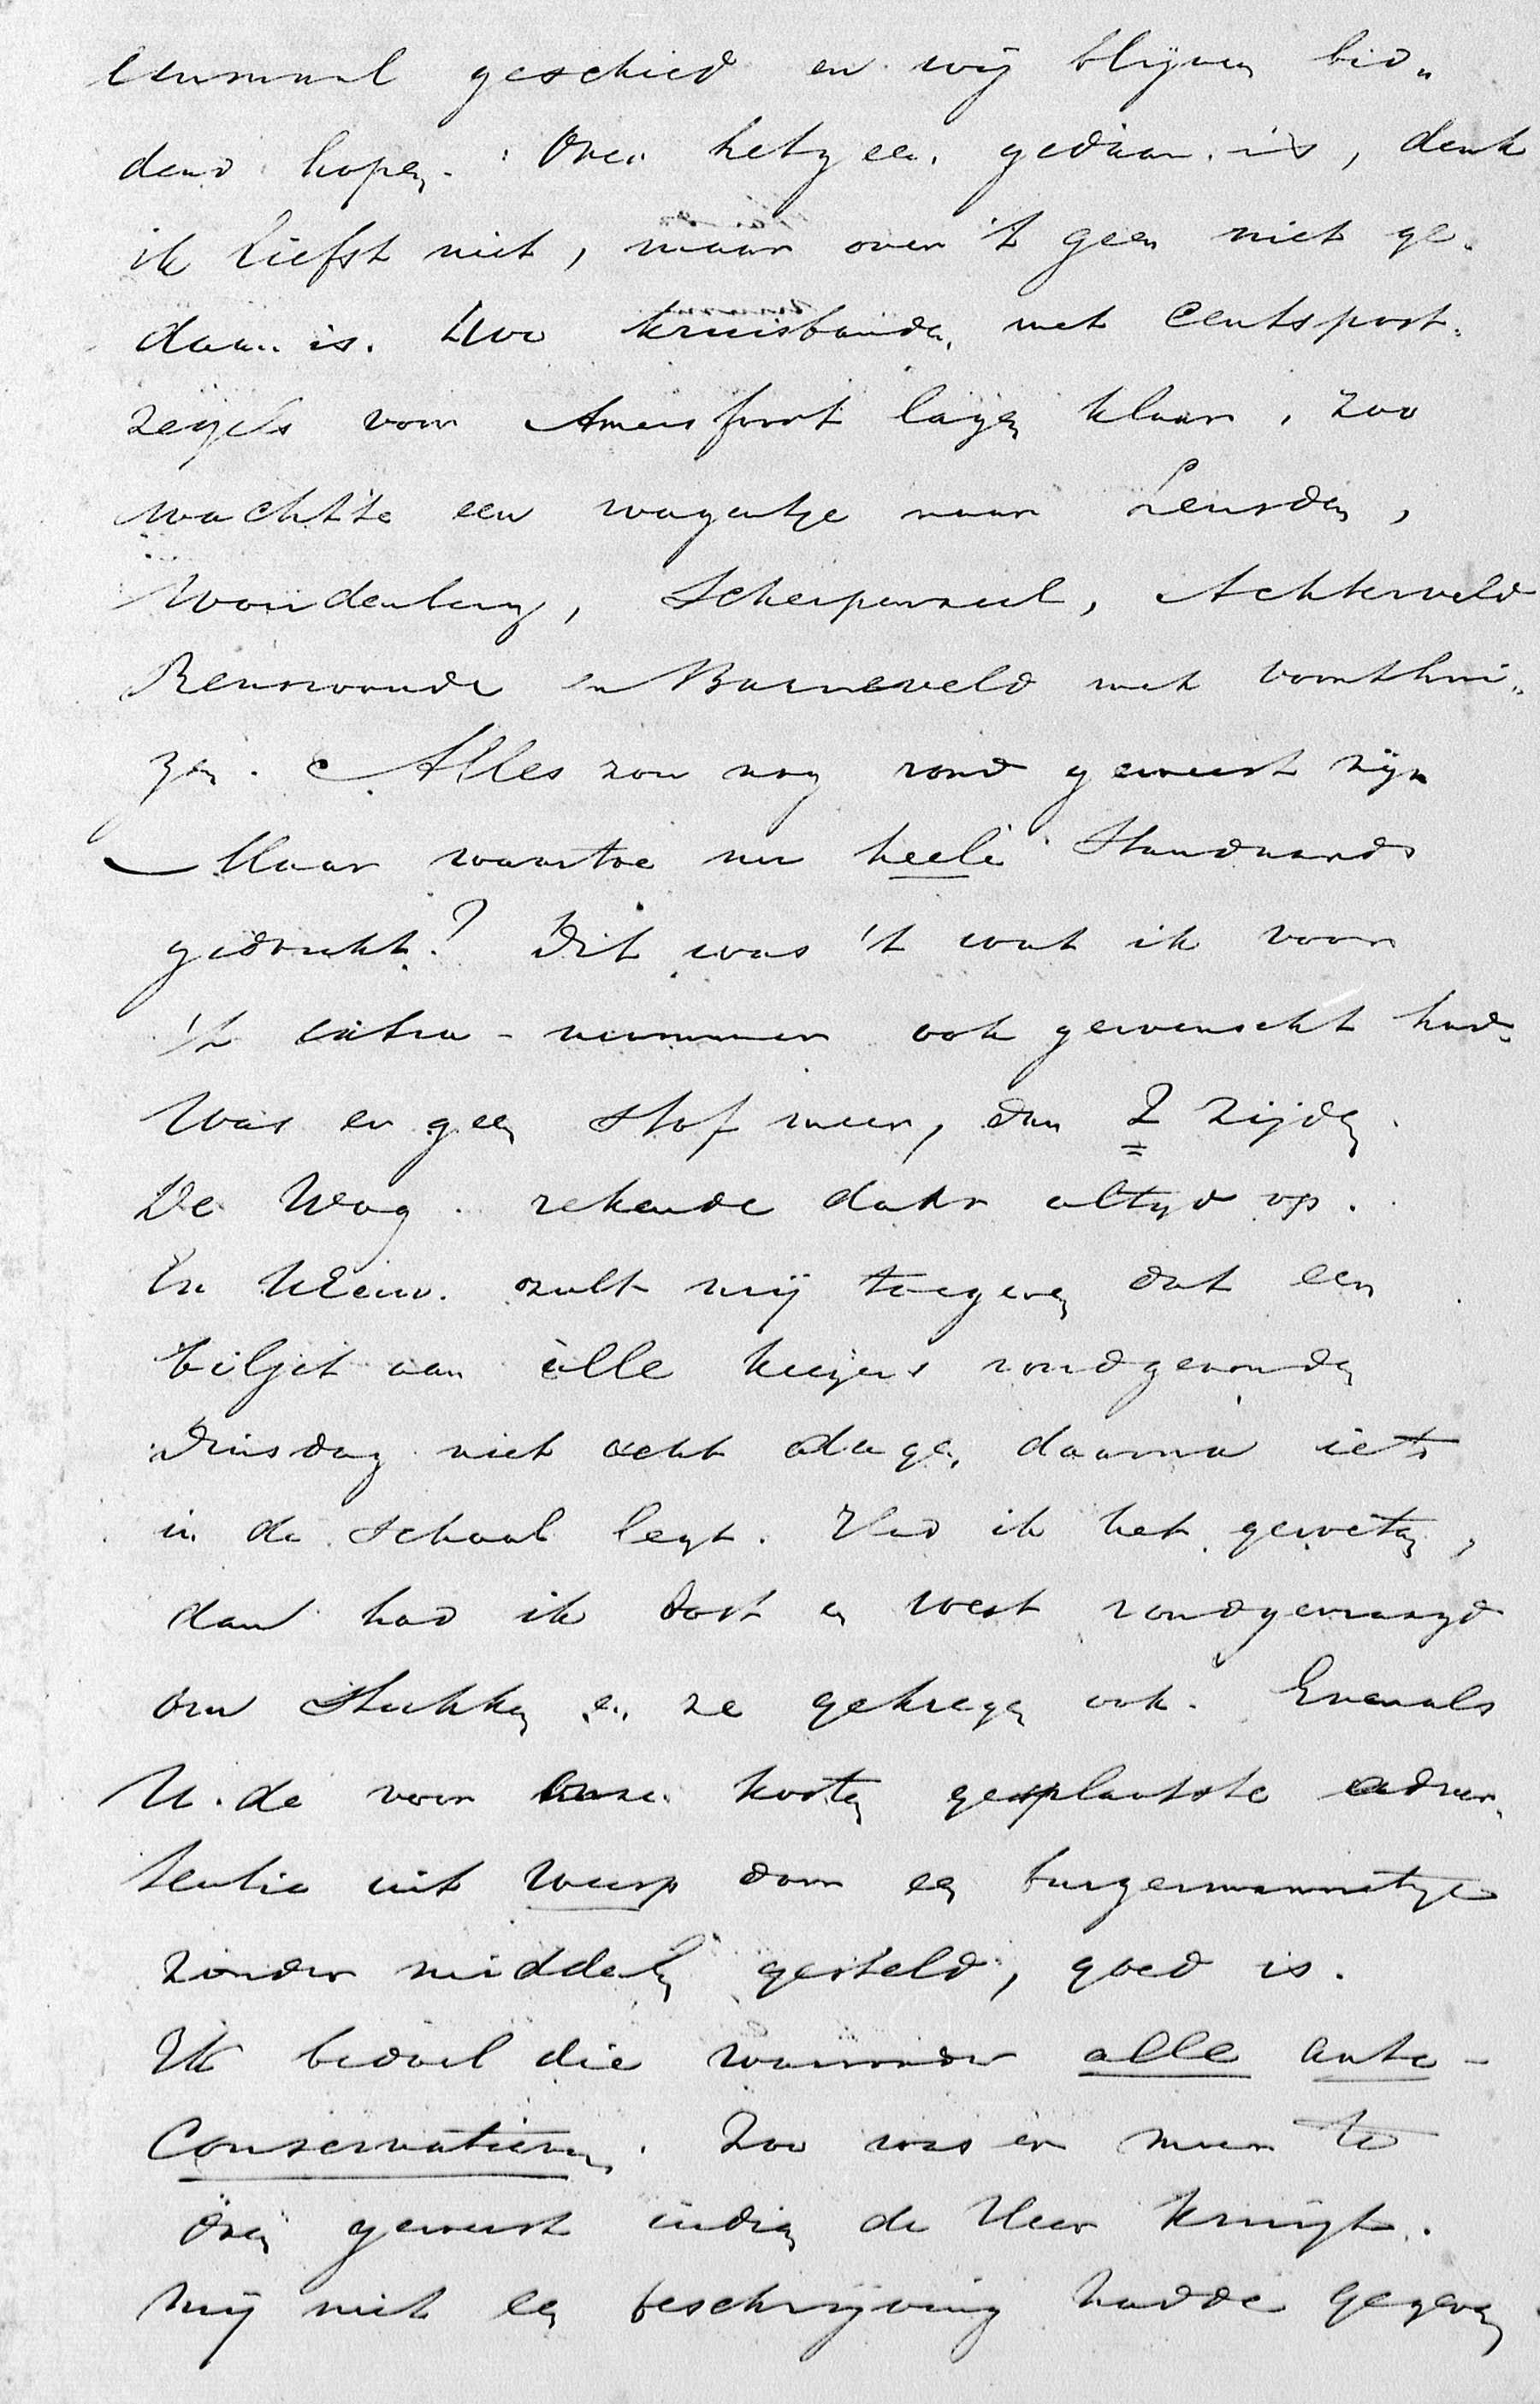 eenmaal geschied en wij blijven bid„
dend hopen. Over hetgeen gedaan is, denk
ik liefst niet, maar over 't geen niet ge„
daan is. Uwe kruisbanden met Centspost„
zegels voor Amersfoort lagen klaar, zoo
wachtte een wagentje naar Leusden,
Woudenberg, Scherpenzeel, Achterveld
Renswoude en Barneveld met Voorthui„
zen. Alles zou nog rond geweest zijn
Maar waartoe nu heele Standaards
gedrukt? Dit was 't wat ik voor
't extra-nummer ook gewenscht had.
Was er geen stof meer, dan 2 zijden.
De Wag. rekende daar altijd op.
En UEerw. zult mij toegeven dat een
biljet aan àlle kiezers rondgezonden
Dinsdag niet acht dagen daarna iets
in de schaal legt. Had ik het geweten,
dan had ik Oost en West rondgevraagd
om stukken en ze gekregen ook. Evenals
U de voor onze kosten geplaatste adver„
tentie uit Weesp door een burgermannetje
zonder middelen gesteld, goed is.
Ik bedoel die waaronder alle Anti-
Conservatieven. Zoo was er meer te
doen geweest indien de Heer Kruyt.
mij niet een beschrijving hadde gegeven